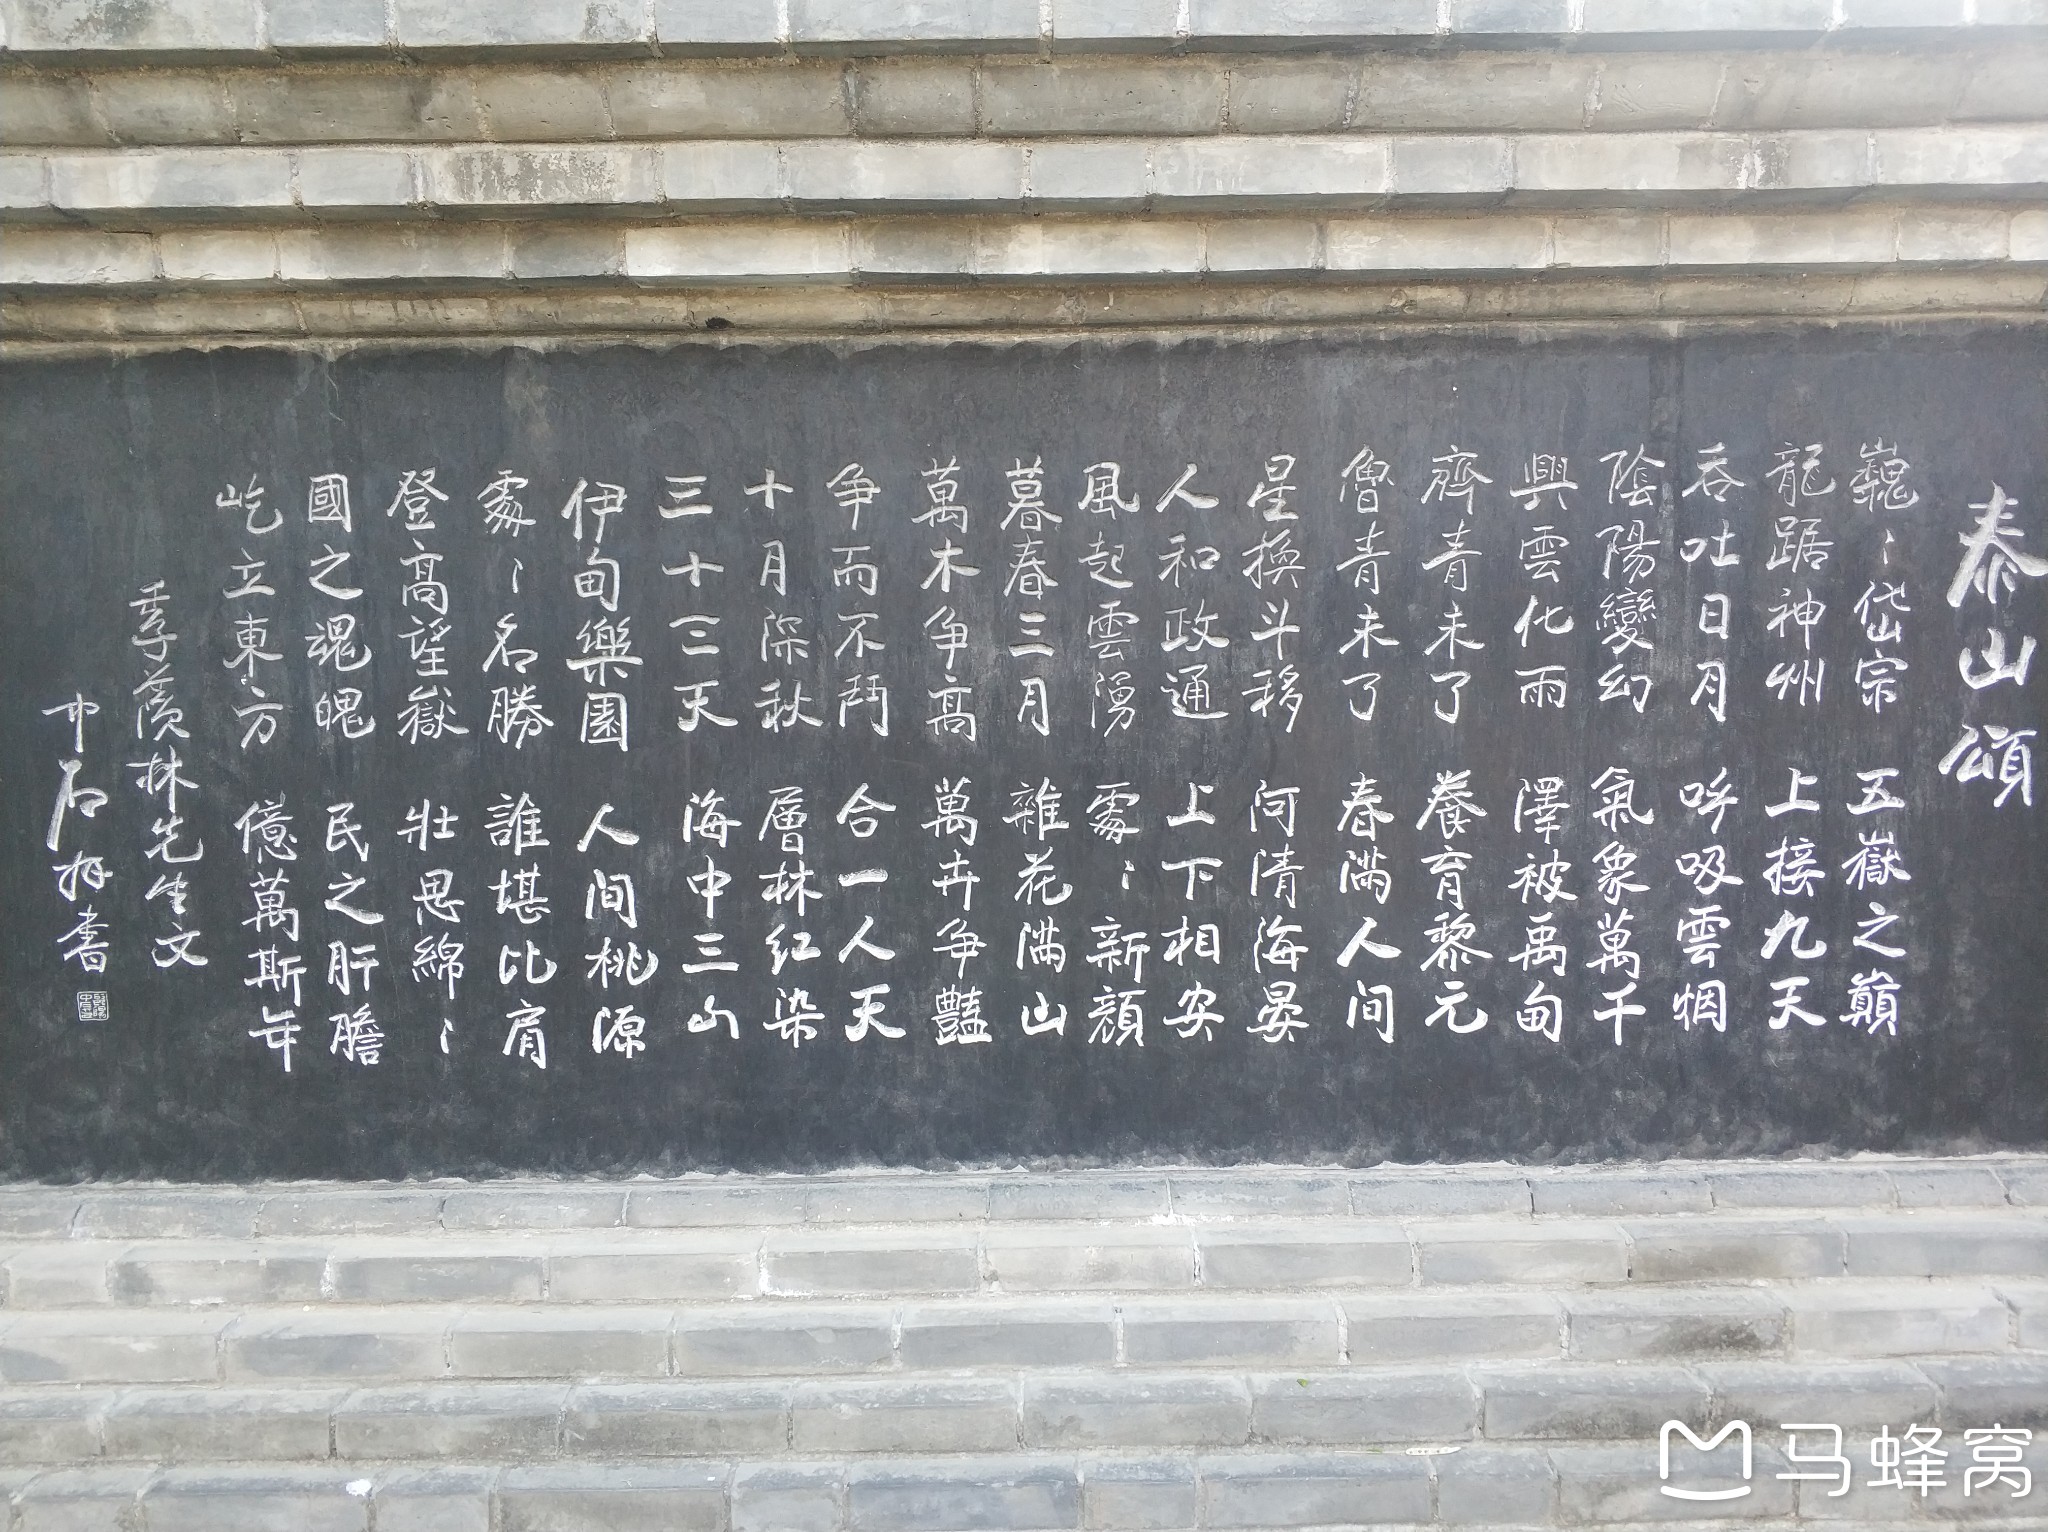 泰山頌
巍〻岱宗 五嶽之巔
龍踞神州 上接九天
吞吐日月 呼吸雲烟
陰陽變幻 氣象萬千
興雲化雨 澤被禹甸
齊青未了 養育黎元
魯青未了 春滿人间
星換斗移 河清海晏
人和政通 上下相安
風起雲湧 處〻新顏
暮春三月 雜花滿山
萬木争高 萬卉争豔
争而不鬥 合一人天
十月深秋 層林红染
三十三天 海中三山
伊甸樂園 人间桃源
處〻名勝 誰堪比肩
登高望嶽 壯思綿〻
國之魂魄 民之肝膽
屹立東方 億萬斯年
季羨林先生文
中石拜書
马蜂窝